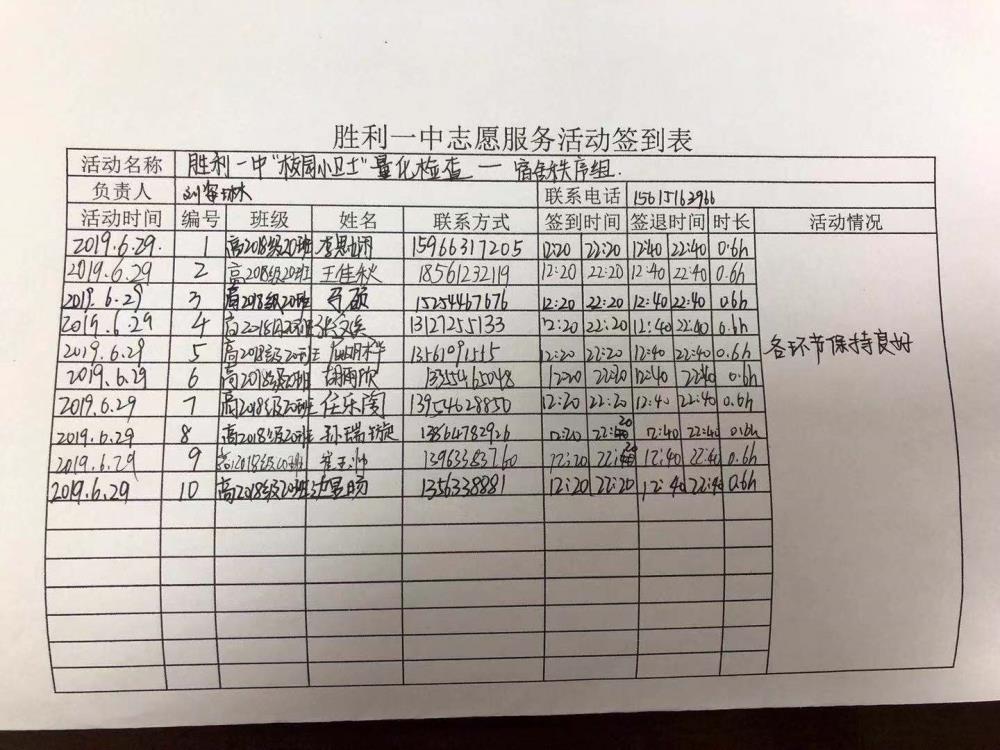 胜利一中志愿服务活动签到表
活动名称 胜利一中"校园小卫士"量化检查 — 宿舍秩序组.
负责人 联系电话 15615163966
活动时间 编号 班级 姓名 联系方式 签到时间 签退时间 时长 活动情况
2019.6.29. 1 高2018级20班 15966317205 12:20 22:20 12:40 22:40 0.6h
2019.6.29 2 高2018级20班 王佳秋 18561232119 12:20 22:20 12:40 22:40 0.6h
2019.6.29 3 高2018级20班 马硕 15254467676 12:20 22:20 12:40 22:40 0.6h
2019.6.29 4 高2018级20班 13127255133 12:20 22:20 12:40 22:40 0.6h
2019.6.29 5 高2018级20班 12:20 22:20 12:40 22:40 0.6h
各环节保持良好
2019.6.29 6 高2018级20班 胡雨欣 13354465048 12:20 22:20 12:40 22:40 0.6h
2019.6.29 7 高2018级20班 任乐陶 13954628850 12:20 22:20 12:40 22:40 0.6h
2019.6.29 8 高2018级20班 13864782926 12:20 22:20 12:40 22:40 0.6h
2019.6.29 9 高2018级20班 崔玉帅 13963383760 12:20 22:20 12:40 22:40 0.6h
2019.6.29 10 高2018级20班 1356338881 12:20 22:20 12:40 22:40 0.6h